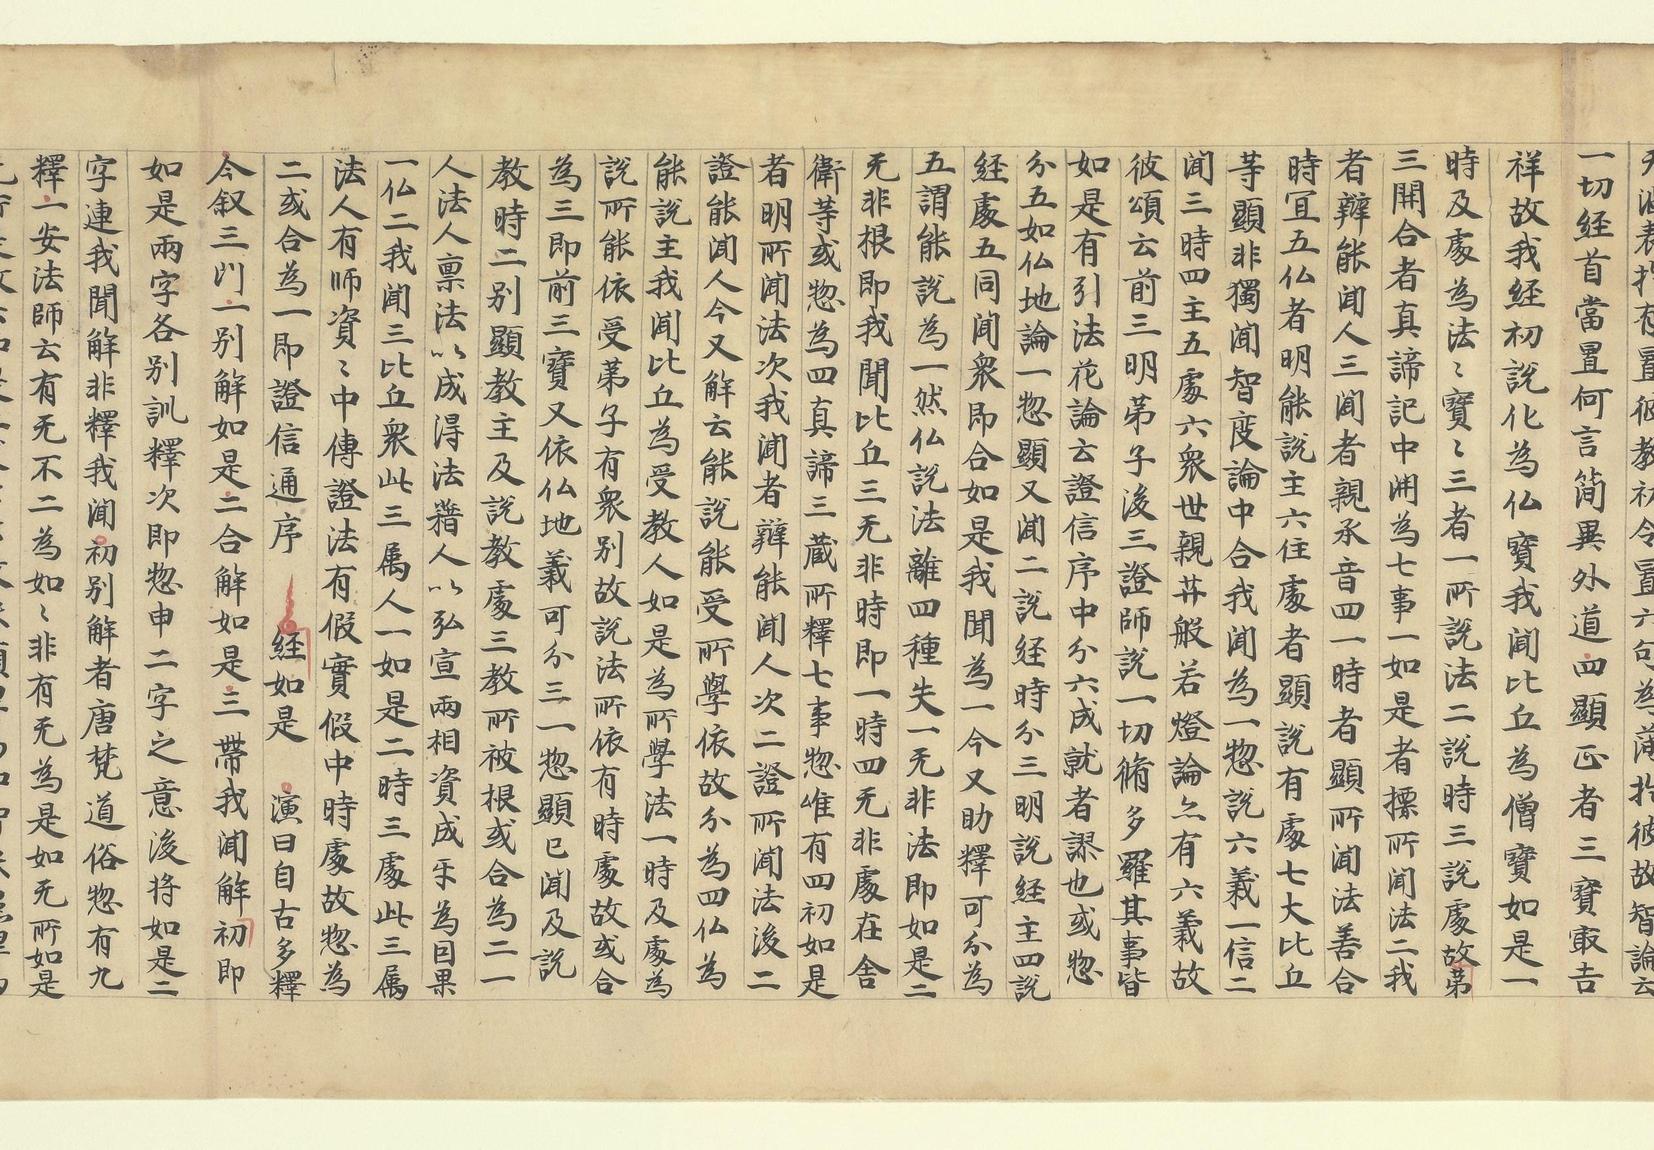 一切経首當置何言簡異外道四顯正者三寳㝡吉
祥故我経初説化為仏寳我聞比丘為僧寳如是一
時及處為法〻寳〻三者一所説法二説時三説處故第
三開合者真諦記中開為七事一如是者摽所聞法二我
者辯能聞人三聞者親承音四一時者顯所聞法善合
時宜五仏者明能説主六住處者顯説有處七大比丘
等顯非獨聞智度論中合我聞為一惣説六義一信二
聞三時四主五處六衆世親菩般若燈論亦有六義故
彼頌云前三明弟子後三證師説一切脩多羅其事皆
如是有引法花論云證信序中分六成就者謬也或惣
分五如仏地論一惣顯又聞二説経時分三明説経主四説
経處五同聞衆即合如是我聞為一今又助釋可分為
五謂能説為一然仏説法離四種失一无非法即如是二
无非根即我聞比丘三无非時即一時四无非處在舍
衛等或惣為四真諦三蔵所釋七事惣唯有四初如是
者明所聞法次我聞者辯能聞人次二證所聞法後二
證能聞人今又解云能説能受所學依故分為四仏為
能説主我聞比丘為受教人如是為所學法一時及處為
説所能依受苐子有衆别故説法所依有時處故或合
為三即前三寳又依仏地義可分三一惣顯已聞及説
教時二别顯教主及説教處三教所被根或合為二一
人法人禀法以成得法藉人以弘宣兩相資成乎為因果
一仏二我聞三比丘衆此三属人一如是二時三處此三属
法人有师資〻中傳證法有假實假中時處故惣為
二或合為一即證信通序 経如是 演曰自古多釋
今叙三门一别解如是二合解如是三帶我聞解初即
如是兩字各别訓釋次即惣申二字之意後将如是二
字連我聞解非釋我聞初别解者唐梵道俗惣有九
釋一安法師云有无不二為如〻非有无為是如无所如是